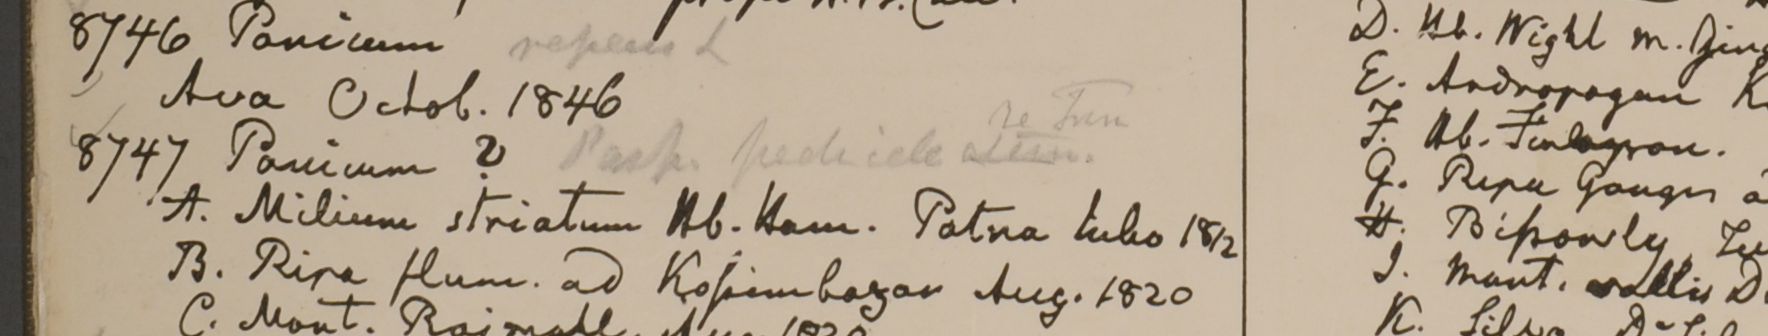 8746 Panicum repens L
Ava Octob. 1846
8747 Panicum ? Pasp. pedicelatum. Trin
A. Milium striatum Hb. Ham. Patna 1812
B. Ripa flum. ad Kossimbazar Aug. 1820
C. Mont. Rajmahl. Aug. 1820
D. Hb. Wight m.
E. Andropogon
F. Hb. Finlayson.
G. Ripa Ganges
H.
I. Mont. vallis
K. Silva